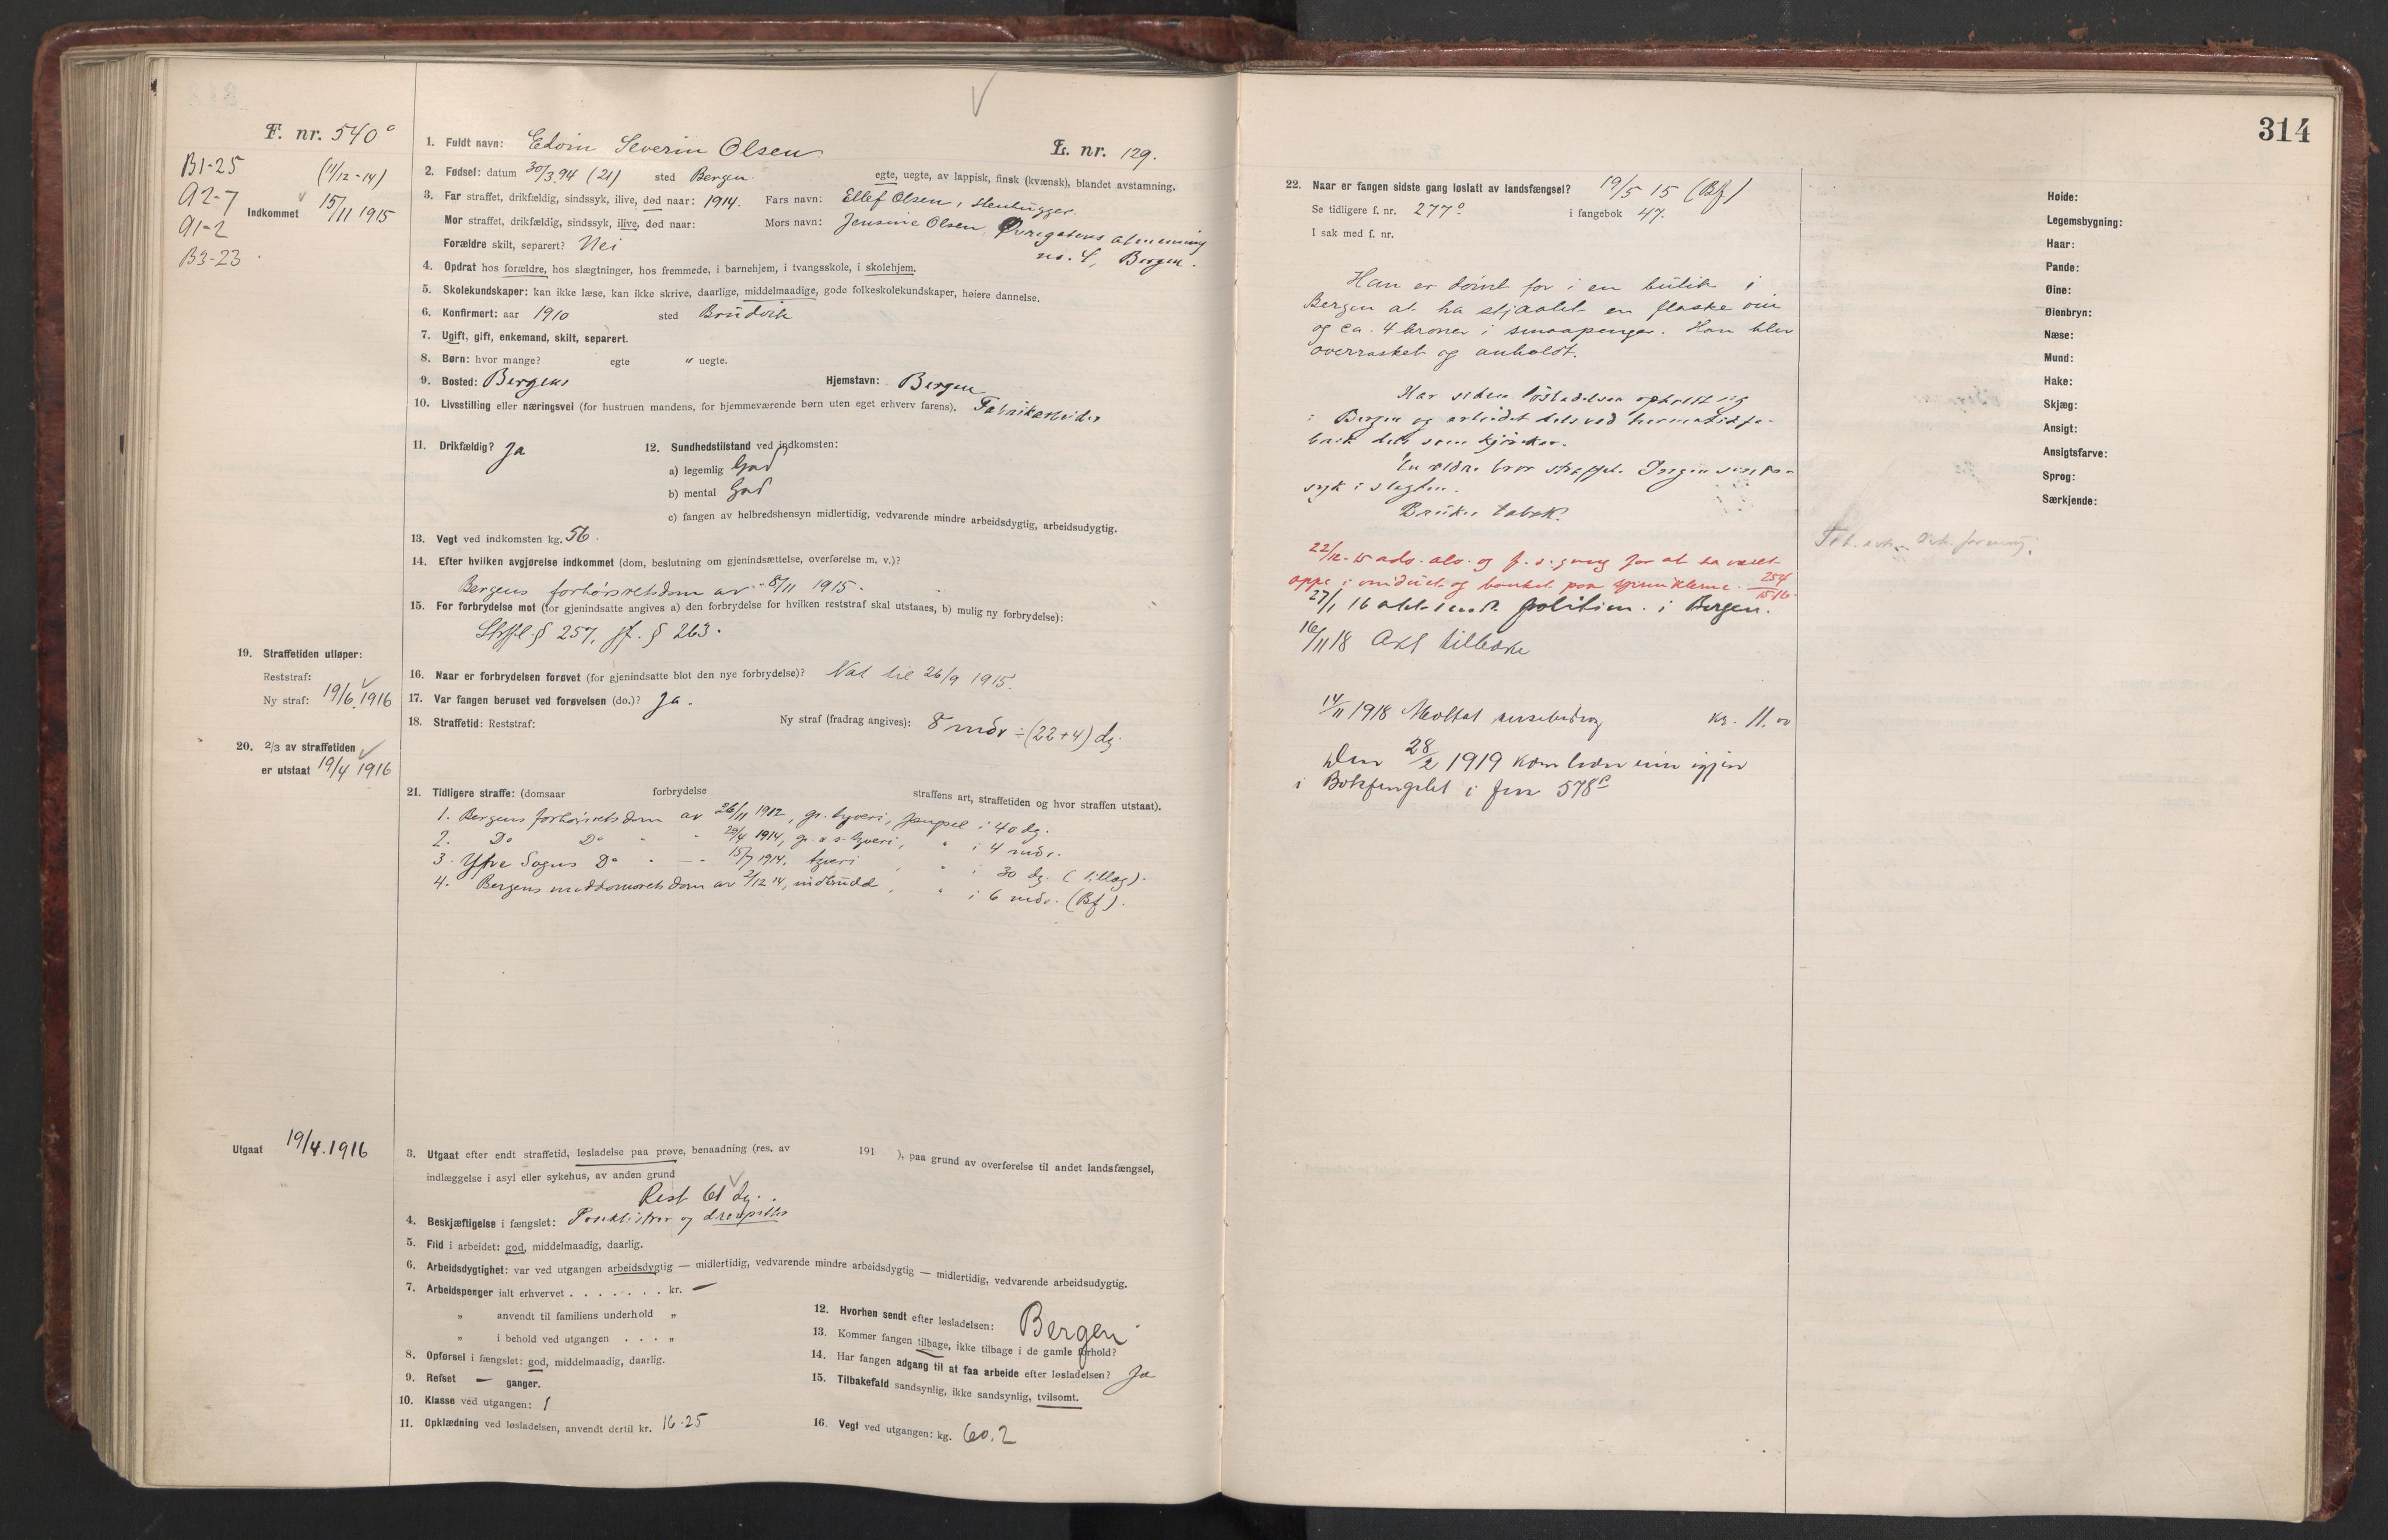 314
F. nr. 540°
B1-25 (11/12-14)
A2-7
Indkommet 15/11 1915
A1-2
B3-23
1. Fuldt navn: Edvin Severin Olsen L. nr. 129.
2. Fødsel: datum 30/3 94 (21) sted Bergen. egte, uegte, av lappisk, finsk (kvænsk), blandet avstamning.
3. Far straffet, drikfældig, sindssyk, ilive, død naar: 1914. Fars navn: Ellef Olsen, stenhugger.
Mor straffet, drikfældig, sindssyk, ilive, død naar: Mors navn: Jensine Olsen, Øvregatens almenning
Forældre skilt, separert? Nei no. 4, Bergen.
4. Opdrat hos forældre, hos slægtninger, hos fremmede, i barnehjem, i tvangsskole, i skolehjem.
5. Skolekundskaper: kan ikke læse, kan ikke skrive, daarlige, middelmaadige, gode folkeskolekundskaper, høiere dannelse.
6. Konfirmert: aar 1910 sted Bruvik
7. Ugift, gift, enkemand, skilt, separert.
8. Børn: hvor mange? egte " uegte.
9. Bosted: Bergen Hjemstavn: Bergen
10. Livsstilling eller næringsvei (for hustruen mandens, for hjemmeværende børn uten eget erhverv farens). Fabrikarbeider
11. Drikfældig? Ja 12. Sundhedstilstand ved indkomsten:
a) legemlig God
b) mental God
c) fangen av helbredshensyn midlertidig, vedvarende mindre arbeidsdygtig, arbeidsudygtig.
13. Vegt ved indkomsten kg. 56.
14. Efter hvilken avgjørelse indkommet (dom, beslutning om gjenindsættelse, overførelse m. v.)?
Bergens forhørsretsdom av 8/11 1915.
15. For forbrydelse mot (for gjenindsatte angives a) den forbrydelse for hvilken reststraf skal utstaaes, b) mulig ny forbrydelse):
Strfl. § 257, jf. § 263.
19. Straffetiden utløper:
Reststraf:
Ny straf: 19/6 1916
16. Naar er forbrydelsen forøvet (for gjenindsatte blot den nye forbrydelse)? Nat til 26/9 1915.
17. Var fangen beruset ved forøvelsen (do.)? Ja.
18. Straffetid: Reststraf: Ny straf (fradrag angives): 8 mdr ÷ (22+4) dg.
20. 2/3 av straffetiden
er utstaat 19/4 1916
21. Tidligere straffe: (domsaar forbrydelse straffens art, straffetiden og hvor straffen utstaat).
1. Bergens forhørsretsdom av 26/11 1912, gr. tyveri, fængsel i 40 dg.
2. Do Do - - 29/4 1914, gr. & s. tyveri, " i 4 mdr.
3. Ytre Sogns Do - - 15/7 1914. tyveri " i 30 dg. (tillæg).
4. Bergens meddomsretsdom av 2/12 14, indbrudd, " i 6 mdr. (Bf).
Utgaat 19/4. 1916
3. Utgaat efter endt straffetid, løsladelse paa prøve, benaadning (res. av 191 ), paa grund av overførelse til andet landsfængsel,
indlæggelse i asyl eller sykehus, av anden grund
Rest 61 dg.
4. Beskjæftigelse i fængslet: og
5. Flid i arbeidet: god, middelmaadig, daarlig.
6. Arbeidsdygtighet: var ved utgangen arbeidsdygtig — midlertidig, vedvarende mindre arbeidsdygtig — midlertidig, vedvarende arbeidsudygtig.
7. Arbeidspenger ialt erhvervet . . . . . . . kr. —
" anvendt til familiens underhold "
" i behold ved utgangen . . . "
8. Opførsel i fængslet: god, middelmaadig, daarlig.
9. Refset — ganger.
10. Klasse ved utgangen: 1
11. Opklædning ved løsladelsen, anvendt dertil kr. 16.25
12. Hvorhen sendt efter løsladelsen: Bergen
13. Kommer fangen tilbage, ikke tilbage i de gamle forhold?
14. Har fangen adgang til at faa arbeide efter løsladelsen? Ja
15. Tilbakefald sandsynlig, ikke sandsynlig, tvilsomt.
16. Vegt ved utgangen: kg. 60.2
22. Naar er fangen sidste gang løslatt av landsfængsel? 19/5 15 (Bf)
Se tidligere f. nr. 277° i fangebok 47.
I sak med f. nr.
Han er dømt for i en butik i
Bergen at ha stjaalet en flaske vin
og ca. 4 kroner i smaapenger. Han blev
overrasket og anholdt.
Har siden løsladelsen opholdt sig
i Bergen og arbeidet dels ved hermetikfa-
brik dels som
En ældre bror straffet. Ingen sinds-
syk i slegten.
Bruker tobak.
22/12-15 adv. alv. og f. s. gang for at ha været
oppe i vinduet og banket paa 254/15-16
27/1 16 akt. sendt politim. i Bergen.
16/11 18 Akt tilbake
14/11 1918 Mottat kr. 11.00
Den 28/2 1919 kom han inn igjen
i Botsfengslet i fnr 578
Høide:
Legemsbygning:
Haar:
Pande:
Øine:
Øienbryn:
Næse:
Mund:
Hake:
Skjæg:
Ansigt:
Ansigtsfarve:
Sprog:
Særkjende: